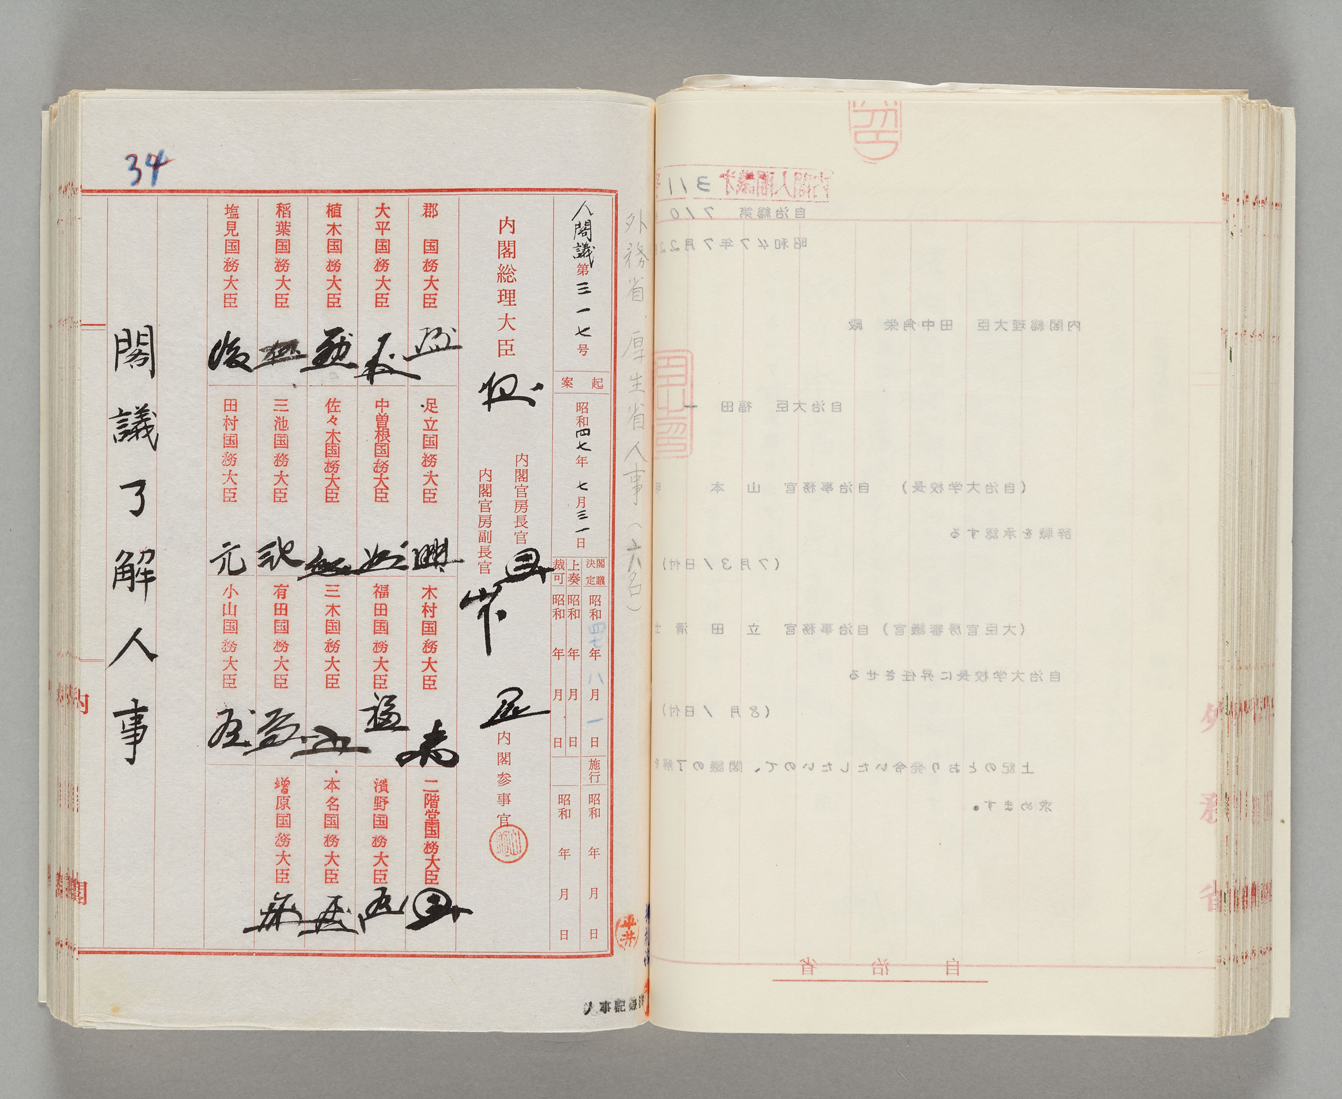 34
人閣議第三一七号
起案
昭和四七年七月三一日
閣議決定
昭和四七年八月一日
上奏
昭和 年 月 日
裁可
昭和 年 月 日
施行
昭和 年 月 日
内閣総理大臣
内閣官房長官
内閣官房副長官
内閣参事官
郡国務大臣
大平国務大臣
植木国務大臣
稲葉国務大臣
塩見国務大臣
足立国務大臣
中曽根国務大臣
佐々木国務大臣
三池国務大臣
田村国務大臣
木村国務大臣
福田国務大臣
三木国務大臣
有田国務大臣
小山国務大臣
二階堂国務大臣
濱野国務大臣
本名国務大臣
増原国務大臣
閣議了解人事
外務省、厚生省人事(六名)
平井
自治総第710
昭和47年7月2
内閣総理大臣 田中角栄 殿
自治大臣 福田 一
(自治大学校長) 自治事務官 山 本
辞職を承認する
(7月31日付)
(大臣官房審議官) 自治事務官 立 田 清
自治大学校長に昇任させる
(8月1日付)
上記のとおり発令いたしたいので、閣議の了解を
求めます。
自治省
外務省